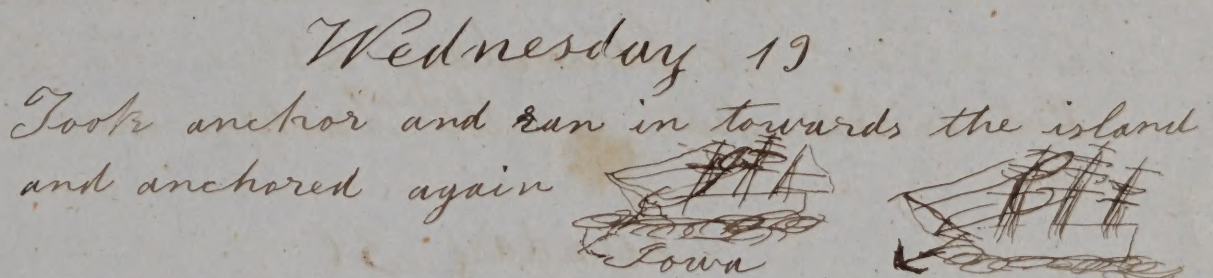 Wednesday 19
Took anchor and ran in towards the island
and anchored again
Iowa